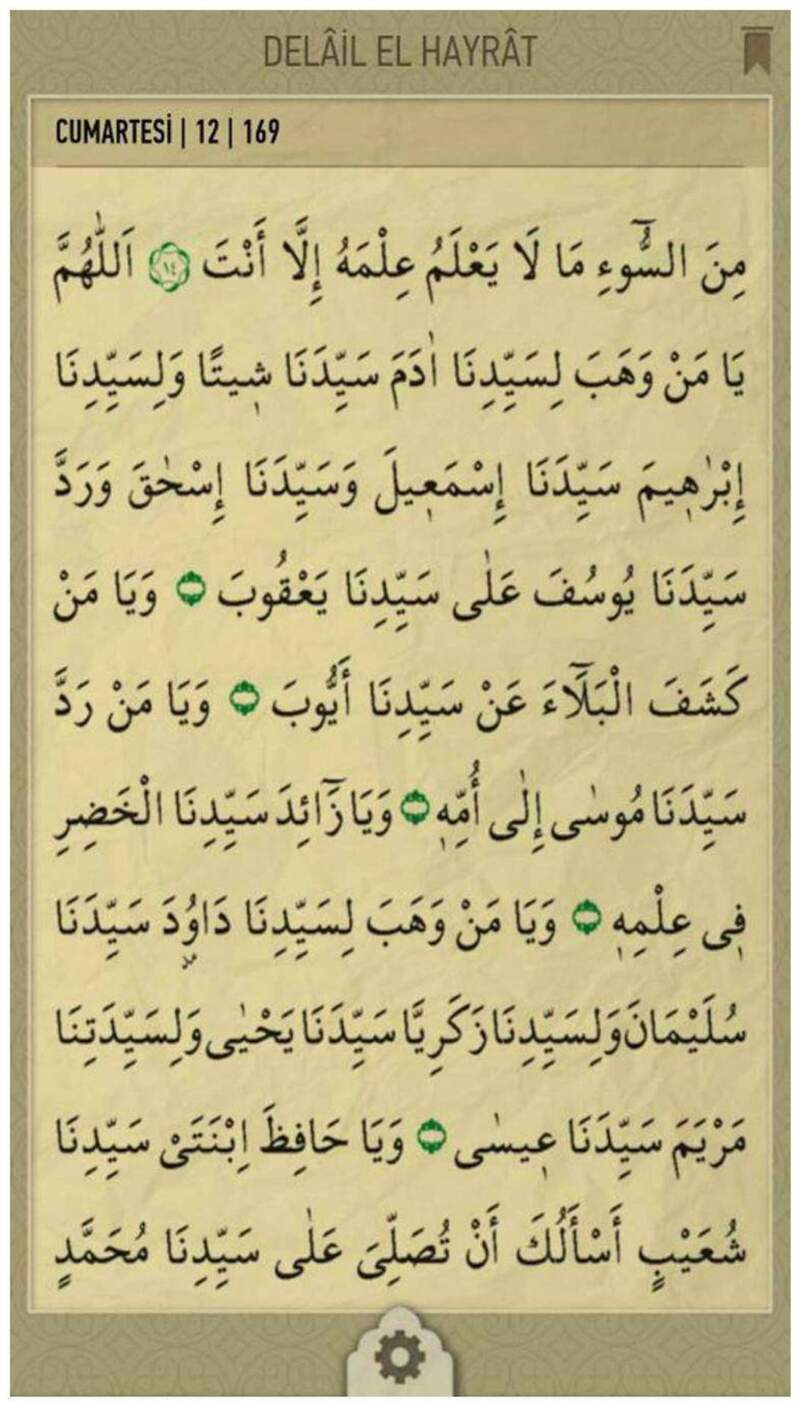 DELÂİL EL HAYRÂT
CUMARTESİ | 12 | 169
مِنَ السُّٓوءِ مَا لَا يَعْلَمُ عِلْمَهُ إِلَّا أَنْتَ ١٤ اَللّٰهُمَّ
يَا مَنْ وَهَبَ لِسَيِّدِنَا اٰدَمَ سَيِّدَنَا شٖيتًا وَلِسَيِّدِنَا
إِبْرٰهٖيمَ سَيِّدَنَا إِسْمَعٖيلَ وَسَيِّدَنَا إِسْحٰقَ وَرَدَّ
سَيِّدَنَا يُوسُفَ عَلٰى سَيِّدِنَا يَعْقُوبَ وَيَا مَنْ
كَشَفَ الْبَلَٓاءَ عَنْ سَيِّدِنَا أَيُّوبَ وَيَا مَنْ رَدَّ
سَيِّدَنَا مُوسٰى إِلٰى أُمِّهٖ وَيَا زَٓائِدَ سَيِّدِنَا الْخَضِرِ
فٖى عِلْمِهٖ وَيَا مَنْ وَهَبَ لِسَيِّدِنَا دَاوُدَ سَيِّدَنَا
سُلَيْمَانَ وَلِسَيِّدِنَا زَكَرِيَّا سَيِّدَنَا يَحْيٰى وَلِسَيِّدَتِنَا
مَرْيَمَ سَيِّدَنَا عٖيسٰى وَيَا حَافِظَ اِبْنَتَىْ سَيِّدِنَا
شُعَيْبٍ أَسْأَلُكَ أَنْ تُصَلِّىَ عَلٰى سَيِّدِنَا مُحَمَّدٍ